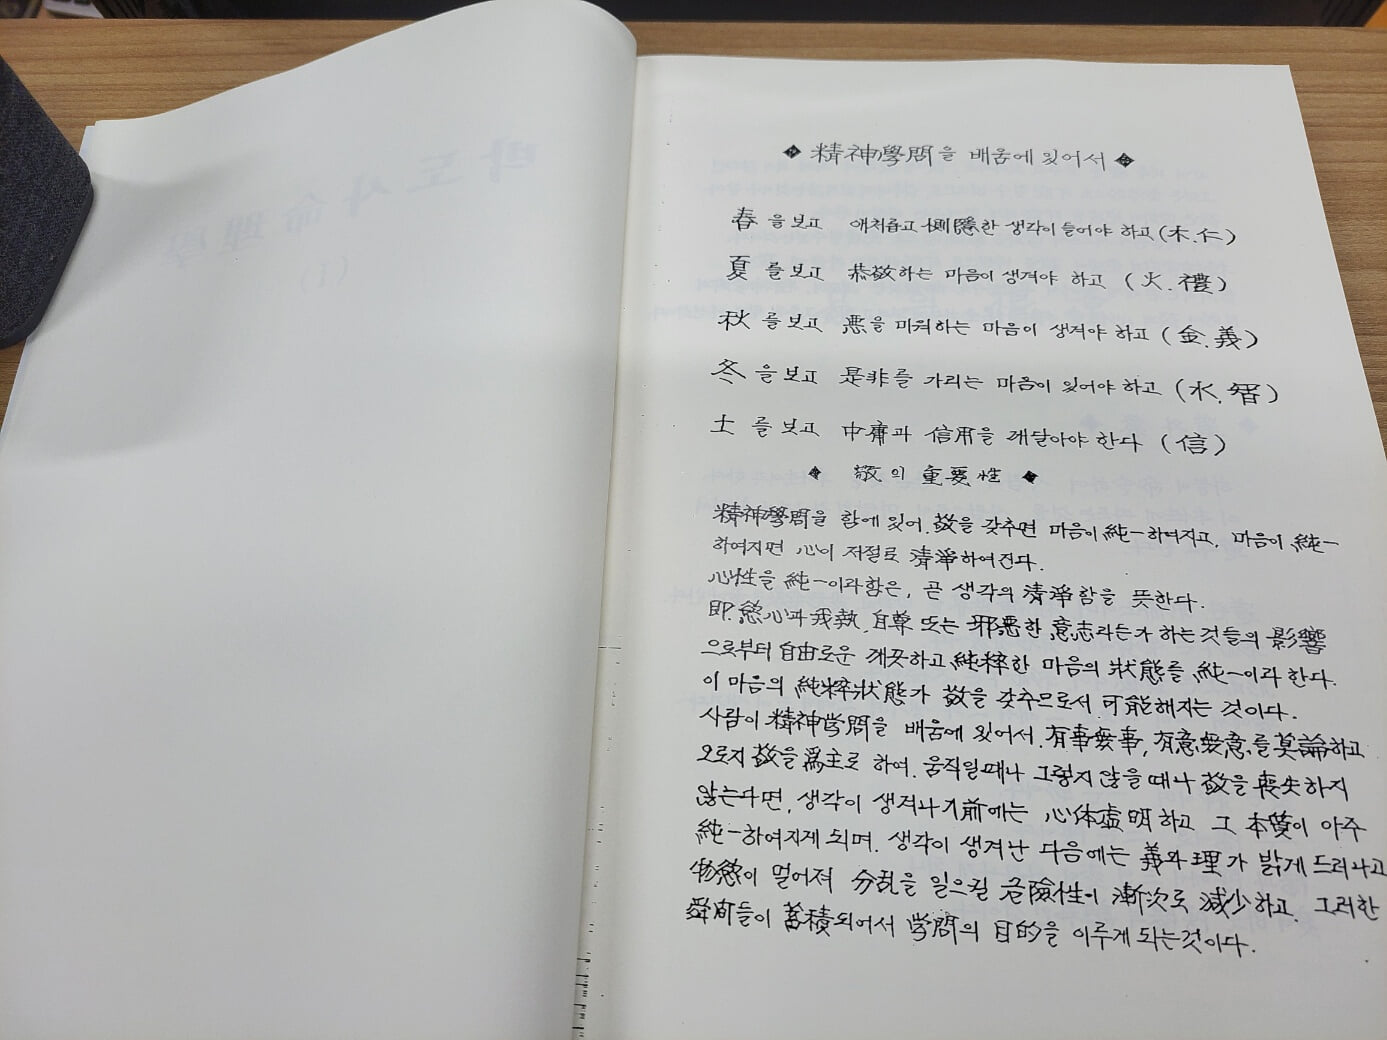 ◈ 精神學問을 배움에 있어서 ◈
春을 보고 애처롭고 惻隱한 생각이 들어야 하고 (木.仁)
夏를 보고 恭敬하는 마음이 생겨야 하고 (火.禮)
秋를 보고 惡을 미워하는 마음이 생겨야 하고 (金.義)
冬을 보고 是非를 가리는 마음이 있어야 하고 (水.智)
土를 보고 中庸과 信用을 깨달아야 한다 (信)
◈ 敬의 重要性 ◈
精神學問을 함에 있어. 敬을 갖추면 마음이 純一하여지고, 마음이 純一
하여지면 心이 저절로 清淨하여진다.
心性을 純一이라함은, 곧 생각의 清淨함을 뜻한다.
即. 慾心과 我執, 自尊 또는 邪惡한 意志라든가 하는 것들의 影響
으로부터 自由로운 깨끗하고 純粹한 마음의 狀態를 純一이라 한다.
이 마음의 純粹狀態가 敬을 갖추므로서 可能해지는 것이다.
사람이 精神学問을 배움에 있어서. 有事無事, 有意無意를 莫論하고
오로지 敬을 爲主로 하여. 움직일때나 그렇지 않을 때나 敬을 喪失하지
않는다면, 생각이 생겨나기前에는 心体虛明하고 그 本質이 아주
純一하여지게 되며. 생각이 생겨난 다음에는 義와 理가 밝게 드러나고
物慾이 멀어져 分乱을 일으킬 危險性이 漸次로 減少하고. 그러한
들이 蓄積되어서 学問의 目的을 이루게 되는것이다.